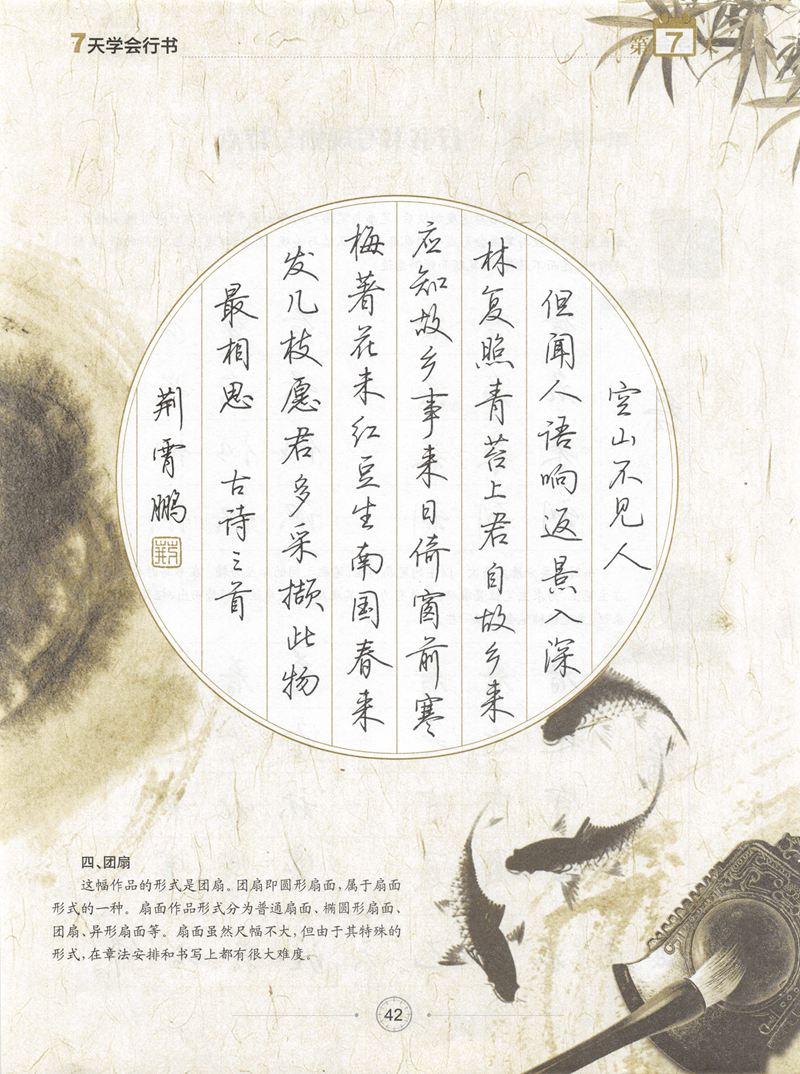 7天学会行书
第7天
空山不见人
但闻人语响返景入深
林复照青苔上君自故乡来
应知故乡事来日倚窗前寒
梅著花未红豆生南国春来
发几枝愿君多采撷此物
最相思 古诗三首
荆霄鹏
荆
四、团扇
这幅作品的形式是团扇。团扇即圆形扇面，属于扇面
形式的一种。扇面作品形式分为普通扇面、椭圆形扇面、
团扇、异形扇面等。扇面虽然尺幅不大，但由于其特殊的
形式，在章法安排和书写上都有很大难度。
42